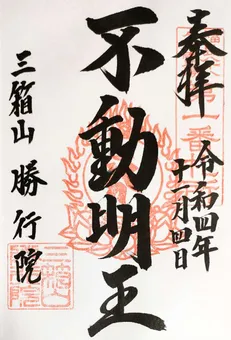 奉拝
令和四年
十一月四日
不動明王
三箱山 勝行院